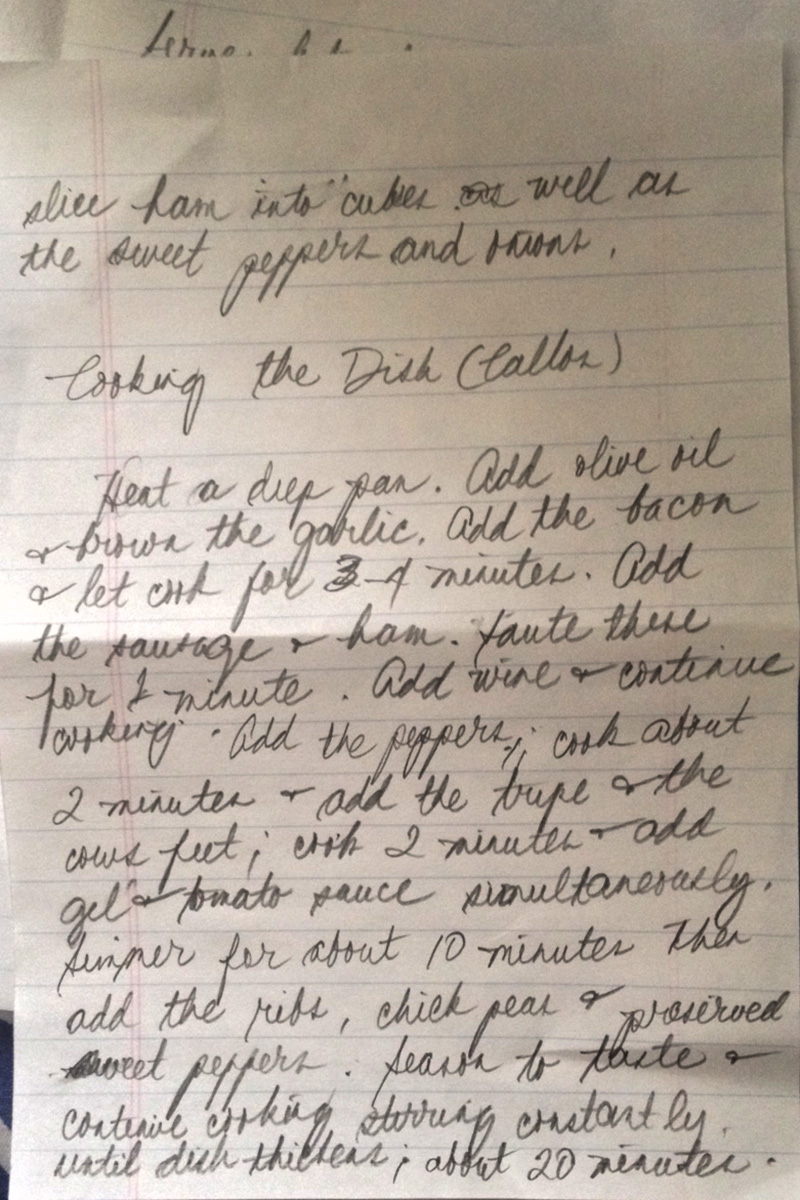 slice ham into "cubes as well as
the sweet peppers and onions.
Cooking the Dish (Callos)
Heat a deep pan. Add olive oil
& brown the garlic. Add the bacon
& let cook for 3-4 minutes. Add
the sausage & ham. Saute these
for 1 minute. Add wine & continue
cooking. Add the peppers; cook about
2 minutes & add the tripe & the
cows feet; cook 2 minutes & add
gel & tomato sauce simultaneously.
Simmer for about 10 minutes then
add the ribs, chick peas & preserved
sweet peppers. Season to taste &
continue cooking stirring constantly
until dish thickens; about 20 minutes.